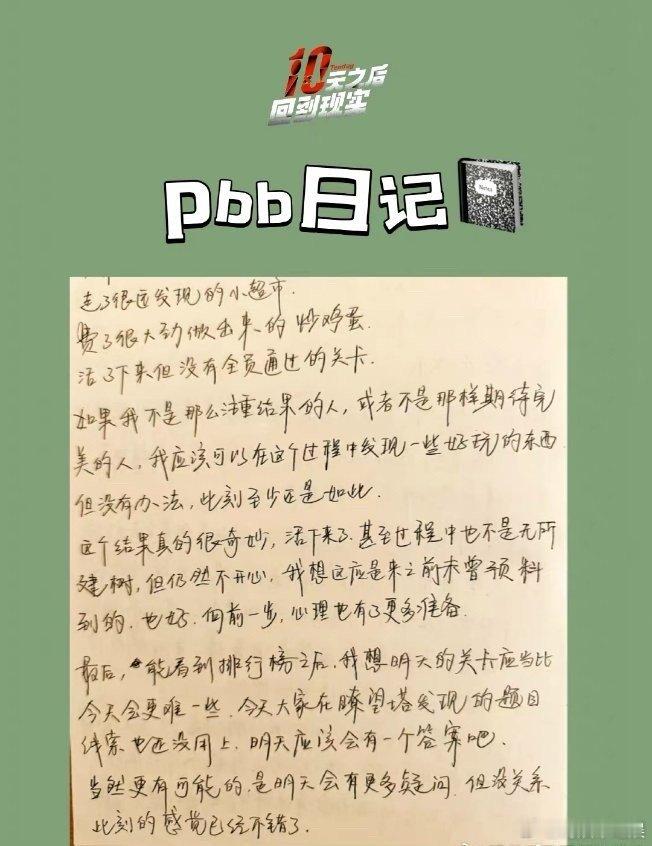 10天之后
Tenday
回到现实
pbb日记
Notes
走了很远发现的小超市.
费了很大劲做出来的炒鸡蛋.
活了下来但没有全员通过的关卡.
如果我不是那么注重结果的人，或者不是那样期待完
美的人，我应该可以在这个过程中发现一些好玩的东西.
但没有办法，此刻至少还是如此.
这个结果真的很奇妙，活下来了.甚至过程中也不是无所
建树，但仍然不开心，我想这应是来之前未曾预料
到的.也好.向前一步，心理也有了更多准备.
最后，能看到排行榜之后，我想明天的关卡应当比
今天会更难一些.今天大家在瞭望塔发现的题目
线索也还没用上.明天应该会有一个答案吧.
当然更有可能的，是明天会有更多疑问.但没关系
此刻的感觉已经不错了.